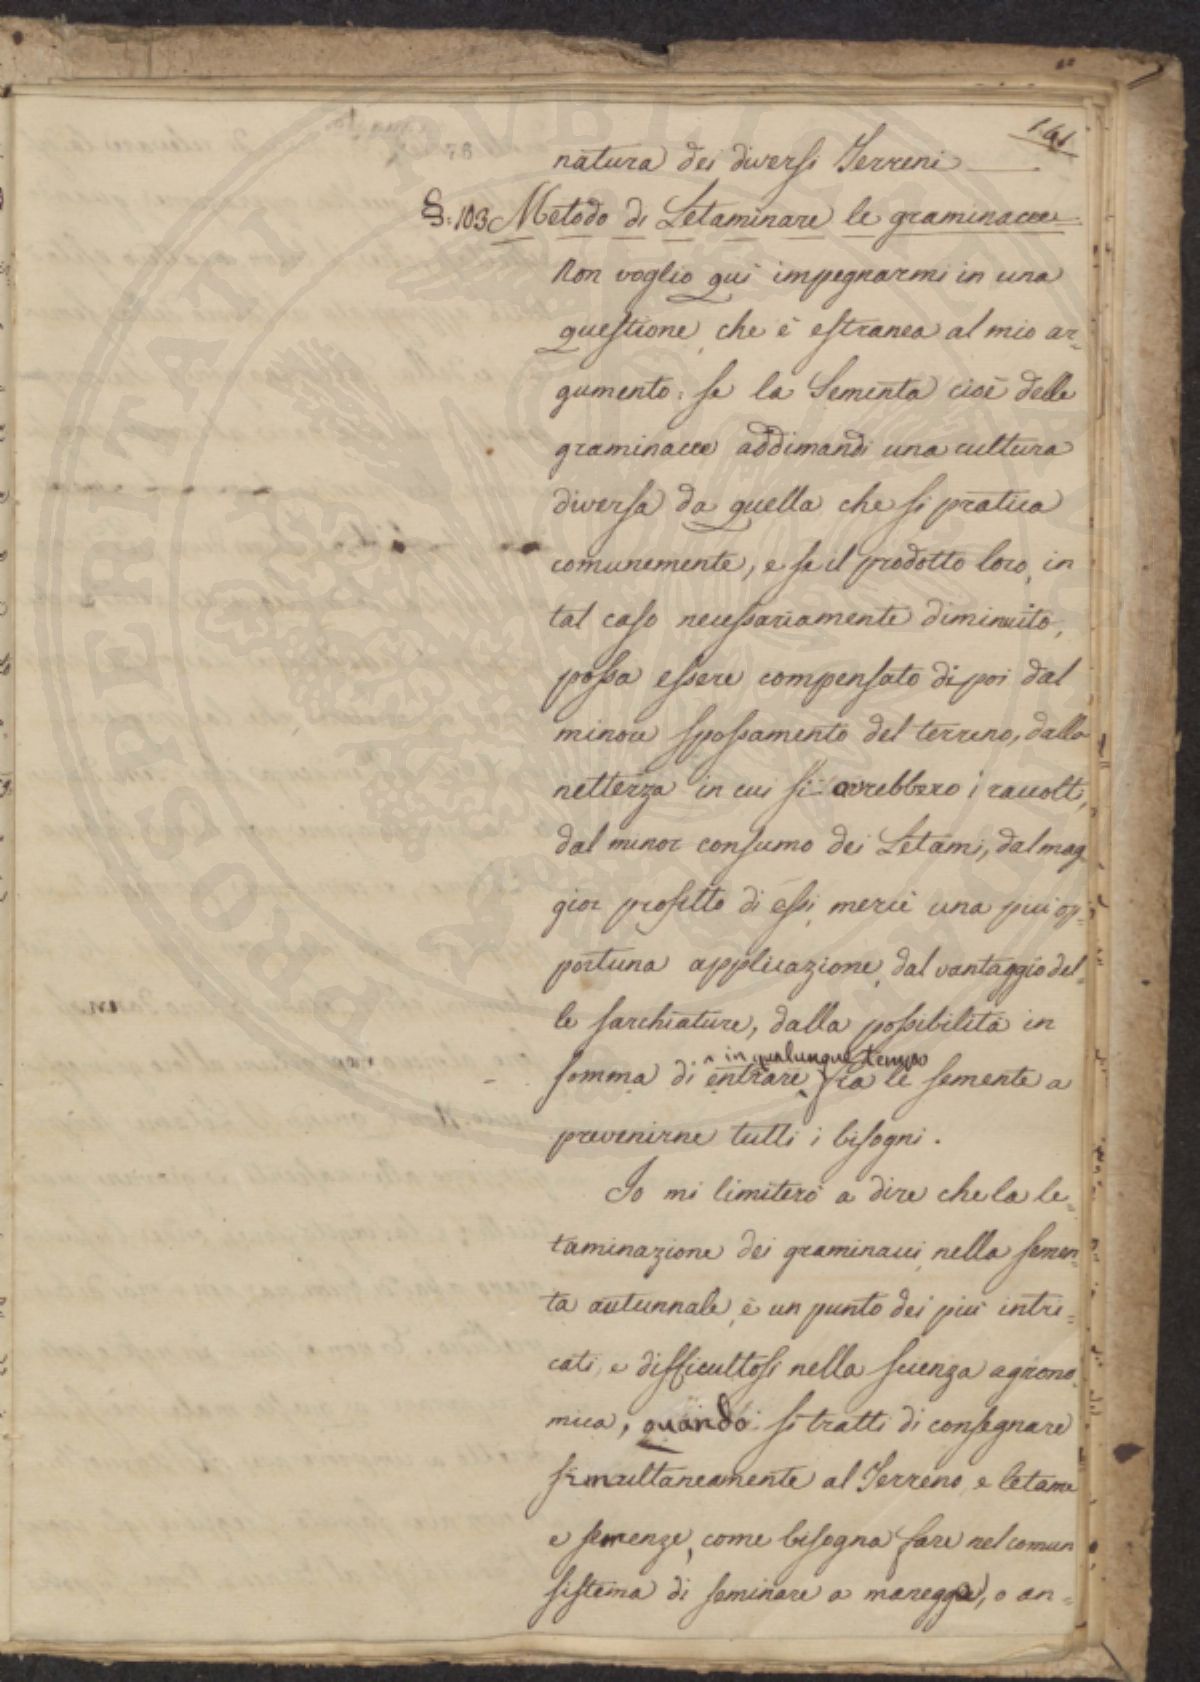 161
natura dei diversi Terreni
§: 103 Metodo di Letaminare le graminacee
Non voglio quì impegnarmi in una
questione, che è estranea al mio ar=
gumento: se la Sementa cioè delle
graminacee addimandi una cultura
diversa da quella che si pratica
comunemente, e se il prodotto loro, in
tal caso necessariamente diminuito,
possa essere compensato di poi dal
minore spossamento del terreno, dalla
nettezza in cui si avrebbero i raccolti,
dal minor consumo dei Letami, dal mag
gior profitto di essi, mercè una più op=
portuna applicazione, dal vantaggio del=
le sarchiature, dalla possibilità in
somma di entrare in qualunque tempo fra le semente a
prevenirne tutti i bisogni.
Io mi limiterò a dire che la le=
taminazione dei graminacei, nella semen=
ta autunnale, è un punto dei più intri=
cati, e difficultosi nella scienza agrono
mica, quando si tratti di consegnare
simultaneamente al Terreno, e letame
e semenze, come bisogna fare nel comun
sistema di seminare a mareggie, o an=
PROSPERITATI PUBLICAE